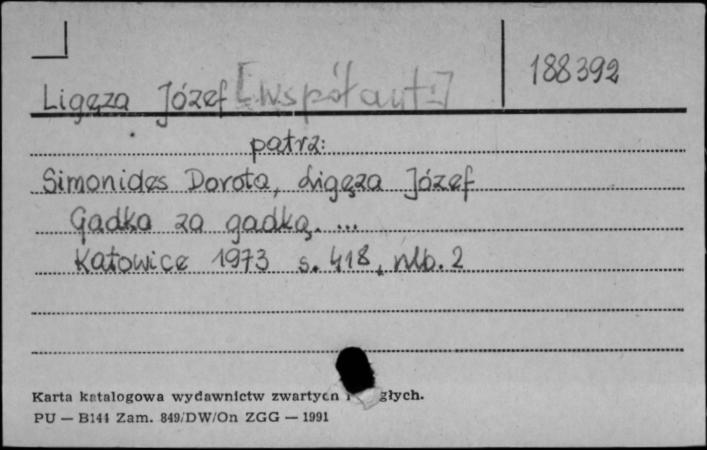 Ligęza Józef [współaut:]
188392
patrz:
Simonides Dorota, Ligęza Józef
Gadka za gadką. ...
Katowice 1973 s. 418, nlb. 2
Karta katalogowa wydawnictw zwartych i głych.
PU — B141 Zam. 849/DW/On ZGG — 1991